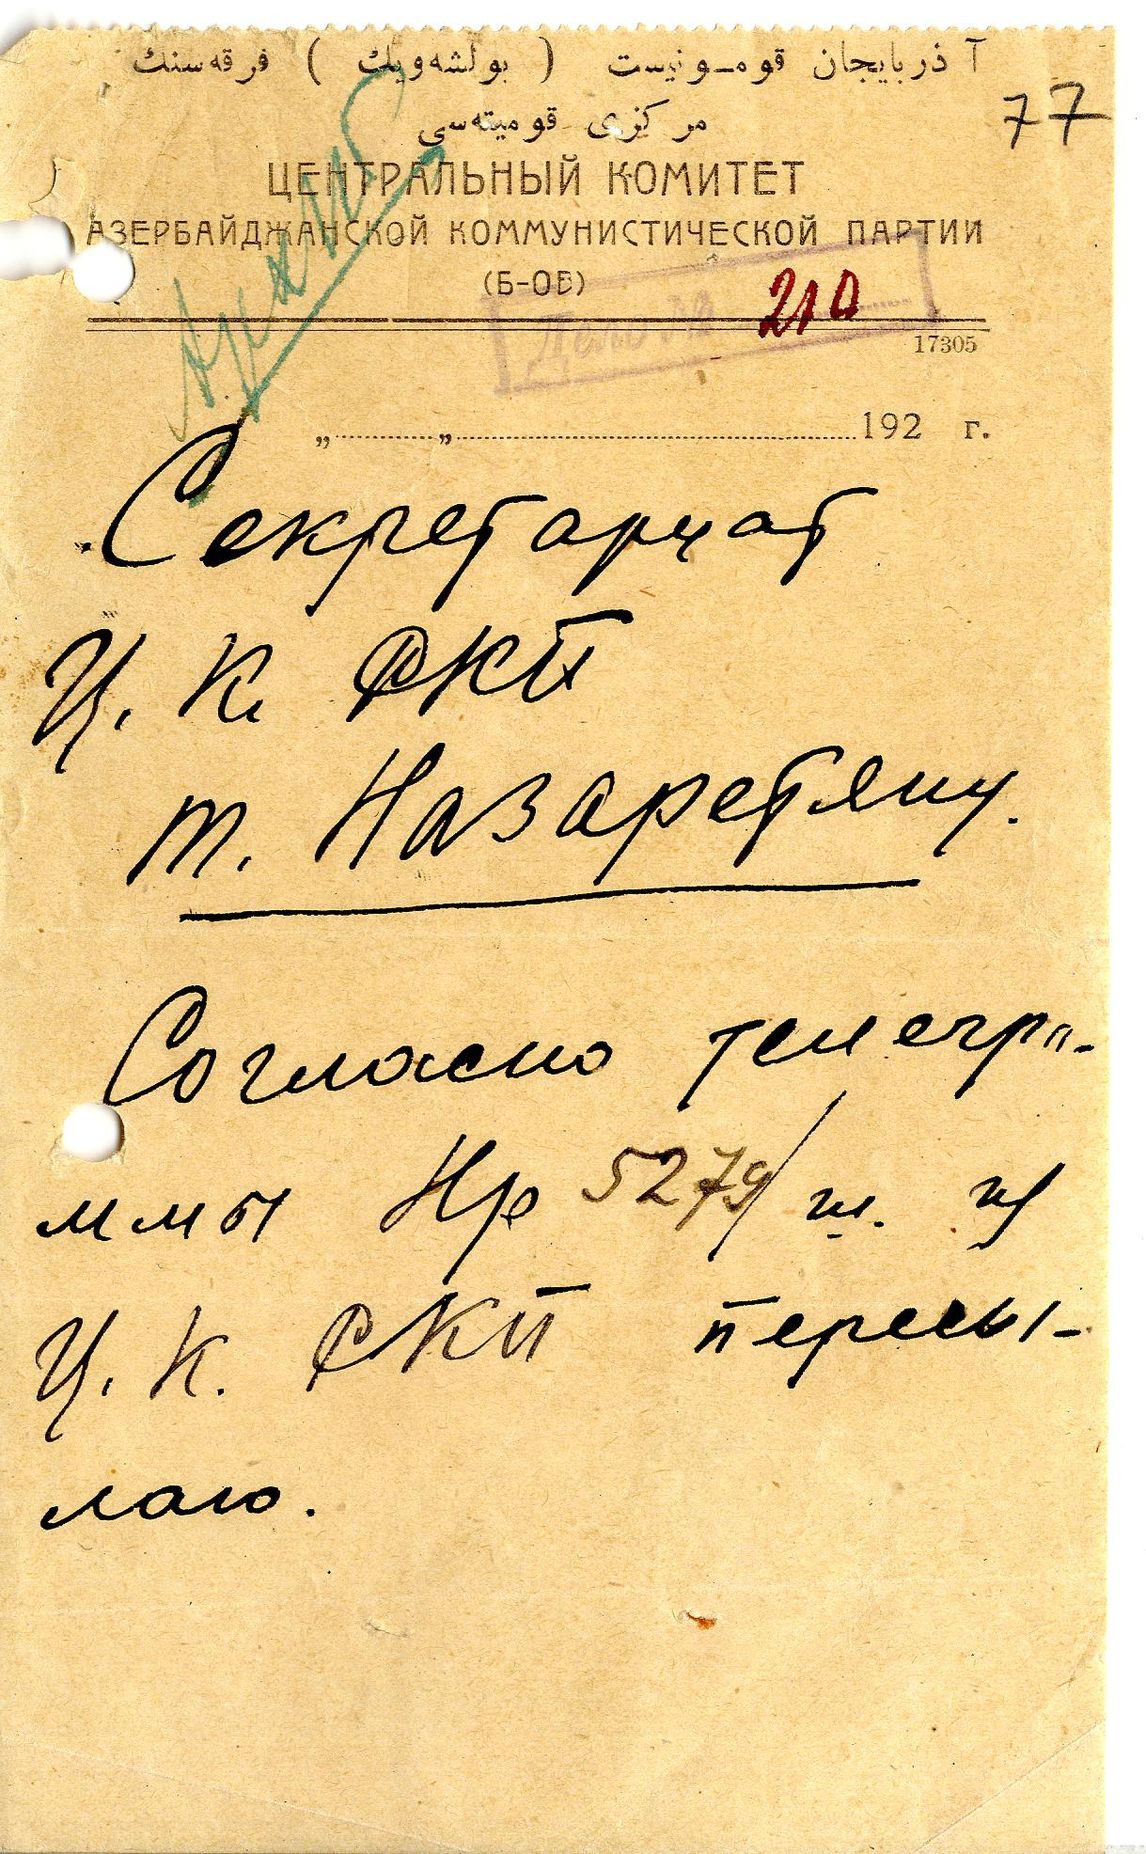 آذربایجان قومـونیست ( بولشه‌ویك ) فرقه‌سنك
مركزی قومیته‌سی
77
ЦЕНТРАЛЬНЫЙ КОМИТЕТ
АЗЕРБАЙДЖАНСКОЙ КОММУНИСТИЧЕСКОЙ ПАРТИИ
(Б-ОВ)
Дело № 210
17305
„ „ 192 г.
Секретариат
Ц. К. РКП
т. Назаретяну.
Согласно телегра-
ммы Нр 5279/ш.
Ц. К. РКП пересы-
лаю.